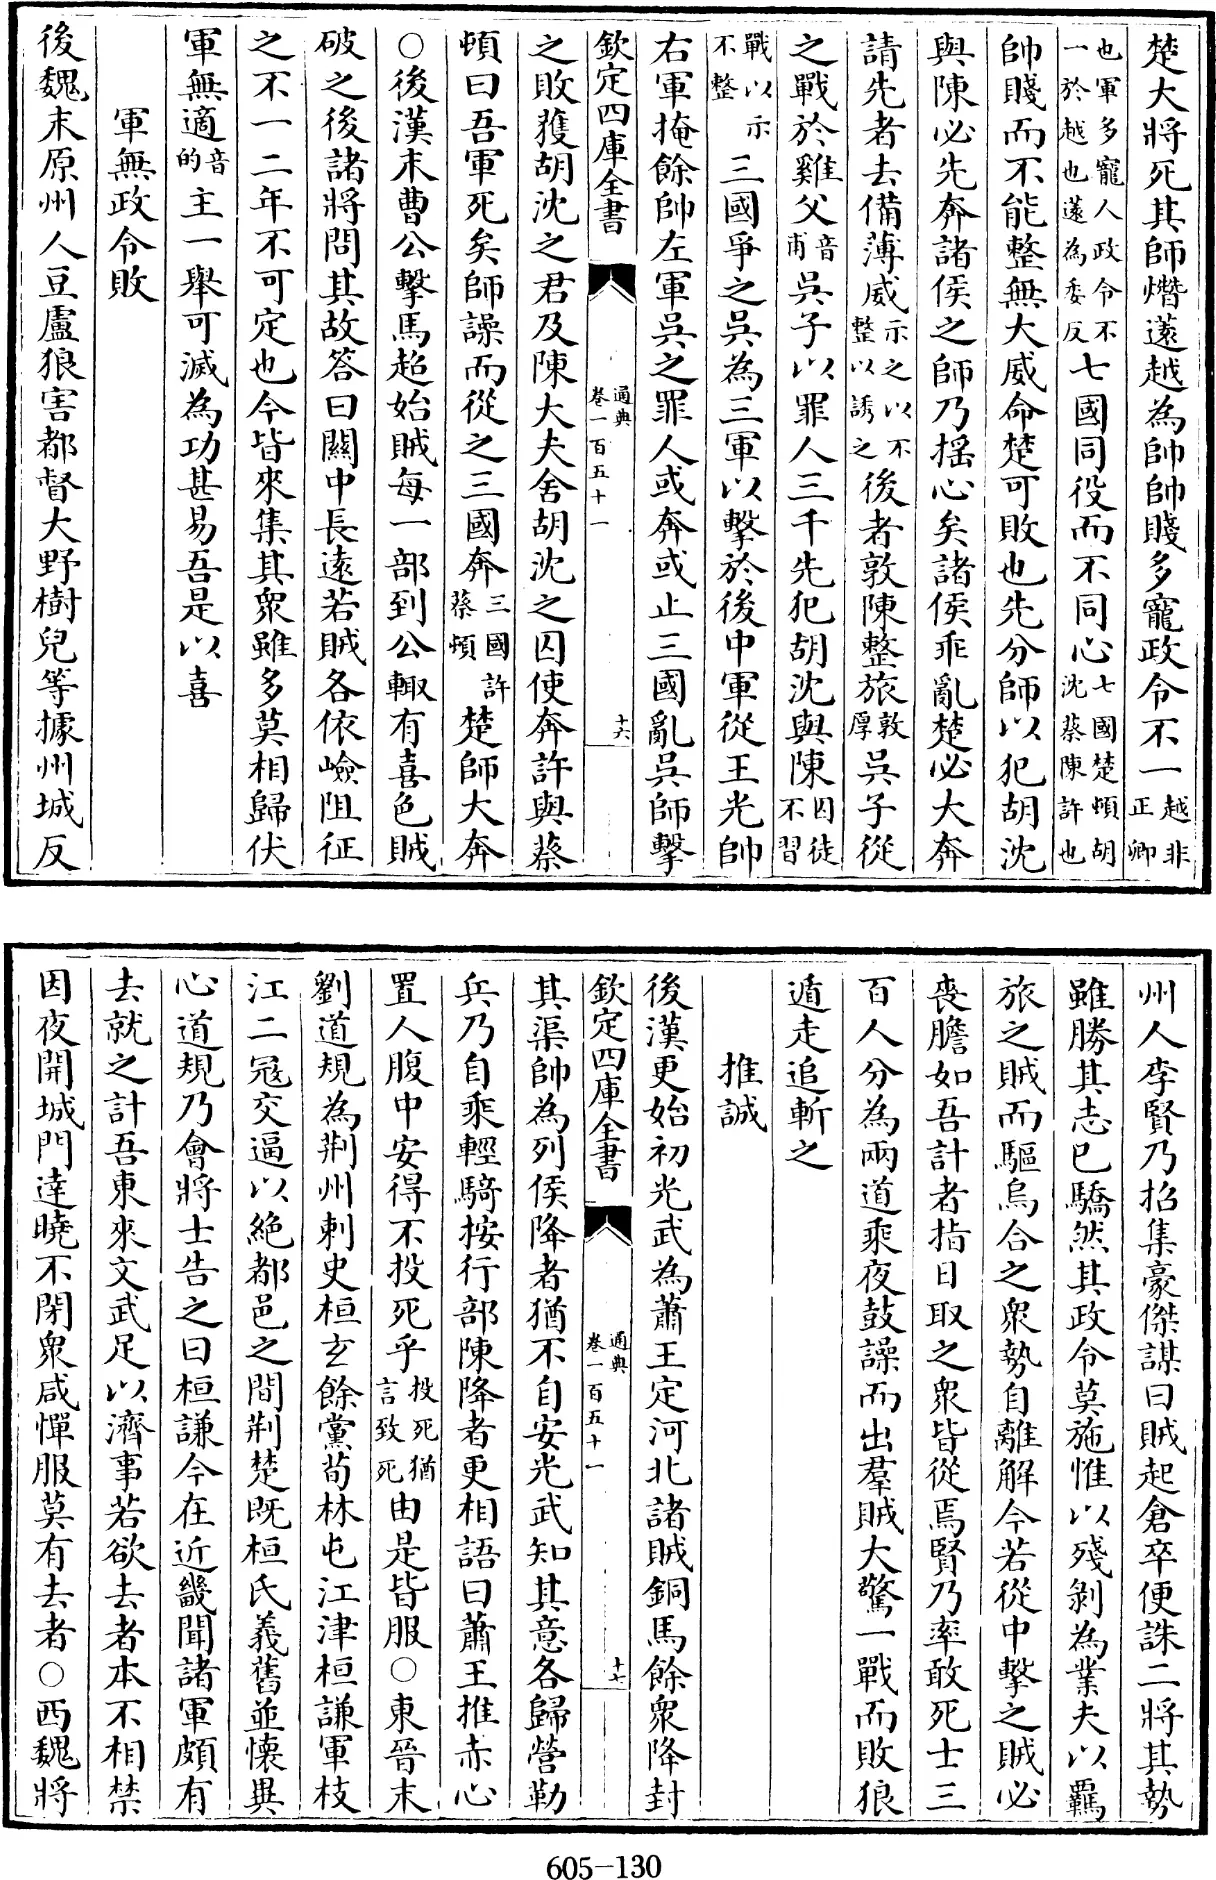 楚大將死其師熸薳越為帥帥賤多寵政令不一越非正卿
也軍多寵人政令不一於越也薳為委反七國同役而不同心七國楚頓胡沈蔡陳許也
帥賤而不能整無大威命楚可敗也先分師以犯胡沈
與陳必先奔諸侯之師乃揺心矣諸侯乖亂楚必大奔
請先者去備薄威示之以不整以誘之後者敦陳整旅敦厚吳子從
之戰於雞父音甫吳子以罪人三千先犯胡沈與陳囚徒不習
戰以示不整三國爭之吳為三軍以擊於後中軍從王光帥
右軍掩餘帥左軍吳之罪人或奔或止三國亂吳師擊
欽定四庫全書 通典卷一百五十一 十六
之敗獲胡沈之君及陳大夫舍胡沈之囚使奔許與蔡
頓曰吾軍死矣師譟而從之三國奔三國許蔡頓楚師大奔
○後漢末曹公擊馬超始賊每一部到公輙有喜色賊
破之後諸將問其故答曰關中長遠若賊各依嶮阻征
之不一二年不可定也今皆來集其衆雖多莫相歸伏
軍無適音的主一舉可滅為功甚易吾是以喜
軍無政令敗
後魏末原州人豆盧狼害都督大野樹兒等據州城反
州人李賢乃招集豪傑謀曰賊起倉卒便誅二將其勢
雖勝其志已驕然其政令莫施惟以殘剥為業夫以羈
旅之賊而驅烏合之衆勢自離解今若從中擊之賊必
喪膽如吾計者指日取之衆皆從焉賢乃率敢死士三
百人分為兩道乘夜鼓譟而出羣賊大驚一戰而敗狼
遁走追斬之
推誠
後漢更始初光武為蕭王定河北諸賊銅馬餘衆降封
欽定四庫全書 通典卷一百五十一 十七
其渠帥為列侯降者猶不自安光武知其意各歸營勒
兵乃自乘輕騎按行部陳降者更相語曰蕭王推赤心
置人腹中安得不投死乎投死猶言致死由是皆服○東晉末
劉道規為荆州刺史桓玄餘黨荀林屯江津桓謙軍枝
江二冦交逼以絶都邑之間荆楚既桓氏義舊並懷異
心道規乃會將士告之曰桓謙今在近畿聞諸軍頗有
去就之計吾東來文武足以濟事若欲去者本不相禁
因夜開城門達曉不閉衆咸憚服莫有去者○西魏將
605-130